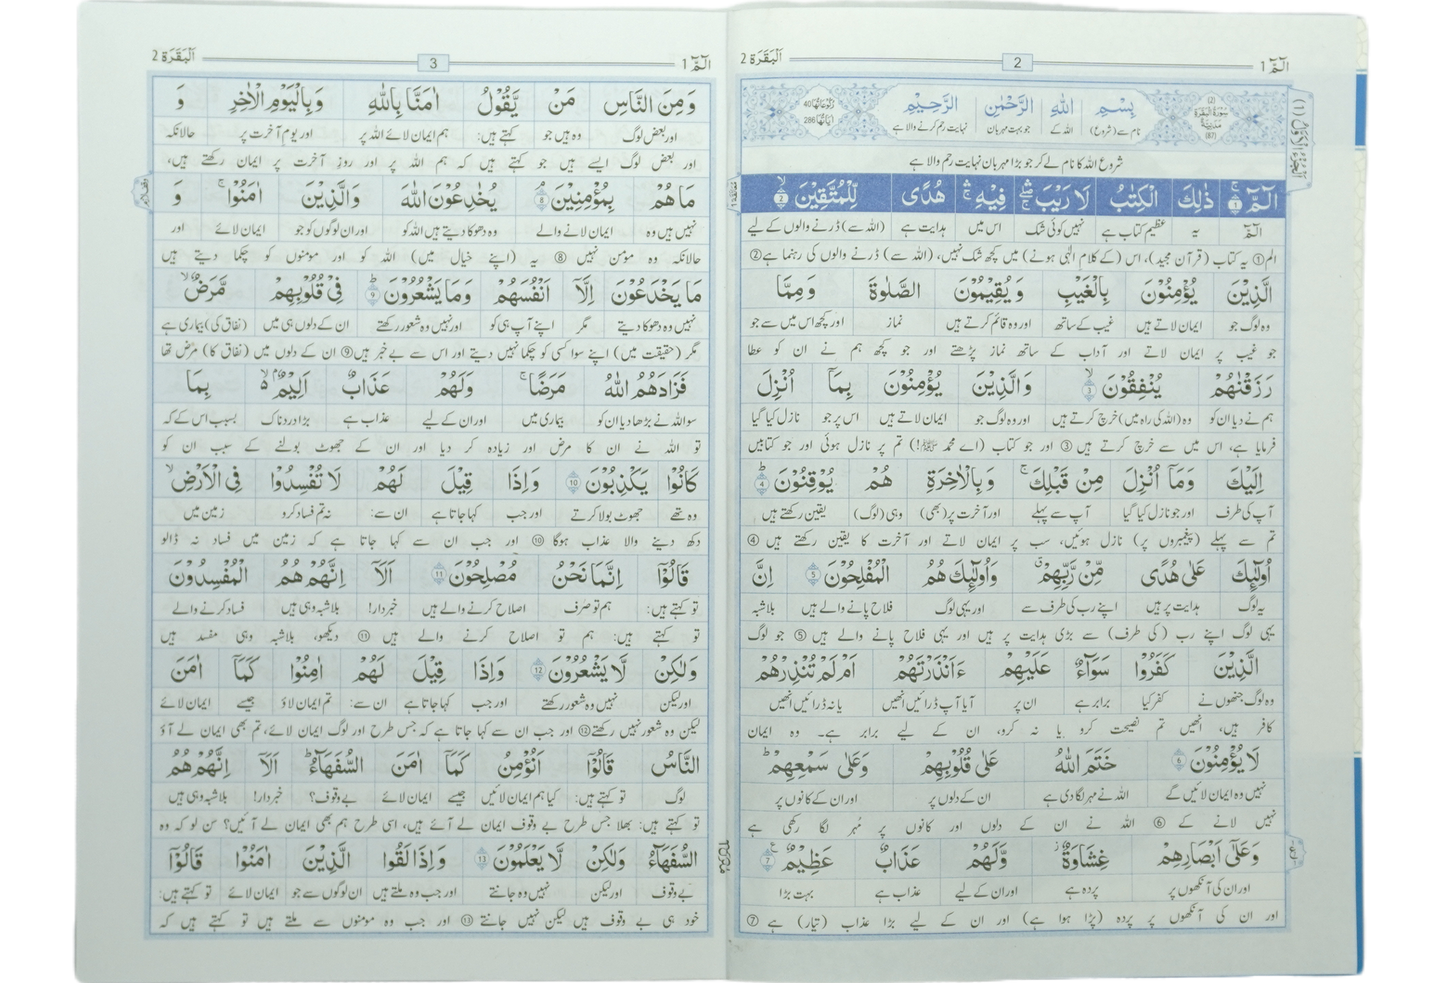 الٓمّٓ 1
2
اَلْبَقَرَة 2
(2) سُوْرَةُ الْبَقَرَةِ مَدَنِيَّةٌ (87)
بِسْمِ اللهِ الرَّحْمٰنِ الرَّحِيْمِ
رُكُوْعَاتُهَا 40 اٰيَاتُهَا 286
نام سے (شروع) اللہ کے جو بہت مہربان نہایت رحم کرنے والا ہے
شروع اللہ کا نام لے کر جو بڑا مہربان نہایت رحم والا ہے
الٓمّٓ ۚ ١ ذٰلِكَ الْكِتٰبُ لَا رَيْبَ ۛۖ فِيْهِ ۛۚ هُدًى لِّلْمُتَّقِيْنَ ۙ ٢
الٓمّٓ یہ عظیم کتاب ہے نہیں کوئی شک اس میں ہدایت ہے (اللہ سے) ڈرنے والوں کے لیے
الم① یہ کتاب (قرآن مجید)، اس (کے کلام الٰہی ہونے) میں کچھ شک نہیں، (اللہ سے) ڈرنے والوں کی رہنما ہے②
الَّذِيْنَ يُؤْمِنُوْنَ بِالْغَيْبِ وَ يُقِيْمُوْنَ الصَّلٰوةَ وَ مِمَّا
وہ لوگ جو ایمان لاتے ہیں غیب کے ساتھ اور وہ قائم کرتے ہیں نماز اور کچھ اس میں سے جو
جو غیب پر ایمان لاتے اور آداب کے ساتھ نماز پڑھتے اور جو کچھ ہم نے ان کو عطا
رَزَقْنٰهُمْ يُنْفِقُوْنَ ۙ ٣ وَ الَّذِيْنَ يُؤْمِنُوْنَ بِمَاۤ اُنْزِلَ
ہم نے دیا ان کو وہ (اللہ کی راہ میں) خرچ کرتے ہیں اور وہ لوگ جو ایمان لاتے ہیں اس پر جو نازل کیا گیا
فرمایا ہے، اس میں سے خرچ کرتے ہیں③ اور جو کتاب (اے محمد ﷺ!) تم پر نازل ہوئی اور جو کتابیں
اِلَيْكَ وَمَاۤ اُنْزِلَ مِنْ قَبْلِكَ ۚ وَ بِالْاٰخِرَةِ هُمْ يُوْقِنُوْنَ ؕ ٤
آپ کی طرف اور جو نازل کیا گیا آپ سے پہلے اور آخرت پر (بھی) وہی (لوگ) یقین رکھتے ہیں
تم سے پہلے (پیغمبروں پر) نازل ہوئیں، سب پر ایمان لاتے اور آخرت کا یقین رکھتے ہیں④
اُولٰٓئِكَ عَلٰى هُدًى مِّنْ رَّبِّهِمْ ۗ وَاُولٰٓئِكَ هُمُ الْمُفْلِحُوْنَ ٥ اِنَّ
یہ لوگ ہدایت پر ہیں اپنے رب کی طرف سے اور یہی لوگ فلاح پانے والے ہیں بلاشبہ
یہی لوگ اپنے رب (کی طرف) سے بڑی ہدایت پر ہیں اور یہی فلاح پانے والے ہیں⑤ جو لوگ
الَّذِيْنَ كَفَرُوْا سَوَآءٌ عَلَيْهِمْ ءَاَنْذَرْتَهُمْ اَمْ لَمْ تُنْذِرْهُمْ
وہ لوگ جنھوں نے کفر کیا برابر ہے ان پر آیا آپ ڈرائیں انھیں یا نہ ڈرائیں انھیں
کافر ہیں، انھیں تم نصیحت کرو یا نہ کرو، ان کے لیے برابر ہے۔ وہ ایمان
لَا يُؤْمِنُوْنَ ٦ خَتَمَ اللهُ عَلٰى قُلُوْبِهِمْ وَعَلٰى سَمْعِهِمْ ؕ
نہیں وہ ایمان لائیں گے اللہ نے مہر لگا دی ہے ان کے دلوں پر اور ان کے کانوں پر
نہیں لانے کے⑥ اللہ نے ان کے دلوں اور کانوں پر مُہر لگا رکھی ہے
وَعَلٰۤى اَبْصَارِهِمْ غِشَاوَةٌ ؗ وَّلَهُمْ عَذَابٌ عَظِيْمٌ ٧
اور ان کی آنکھوں پر پردہ ہے اور ان کے لیے عذاب ہے بہت بڑا
اور ان کی آنکھوں پر پردہ (پڑا ہوا ہے) اور ان کے لیے بڑا عذاب (تیار) ہے⑦
الٓمّٓ 1
3
اَلْبَقَرَة 2
وَ مِنَ النَّاسِ مَنْ يَّقُوْلُ اٰمَنَّا بِاللهِ وَ بِالْيَوْمِ الْاٰخِرِ وَ
اور بعض لوگ وہ ہیں جو کہتے ہیں: ہم ایمان لائے اللہ پر اور یوم آخرت پر حالانکہ
اور بعض لوگ ایسے ہیں جو کہتے ہیں کہ ہم اللہ پر اور روزِ آخرت پر ایمان رکھتے ہیں،
مَا هُمْ بِمُؤْمِنِيْنَ ۘ ٨ يُخٰدِعُوْنَ اللهَ وَالَّذِيْنَ اٰمَنُوْا ۚ وَ
نہیں ہیں وہ ایمان لانے والے وہ دھوکا دیتے ہیں اللہ کو اور ان لوگوں کو جو ایمان لائے اور
حالانکہ وہ مؤمن نہیں⑧ یہ (اپنے خیال میں) اللہ کو اور مومنوں کو چکما دیتے ہیں
مَا يَخْدَعُوْنَ اِلَّاۤ اَنْفُسَهُمْ وَمَا يَشْعُرُوْنَ ؕ ٩ فِيْ قُلُوْبِهِمْ مَّرَضٌ ۙ
نہیں وہ دھوکا دیتے مگر اپنے آپ ہی کو اور نہیں وہ شعور رکھتے ان کے دلوں ہی میں (نفاق کی) بیماری ہے
مگر (حقیقت میں) اپنے سوا کسی کو چکما نہیں دیتے اور اس سے بے خبر ہیں⑨ ان کے دلوں میں (نفاق کا) مرض تھا
فَزَادَهُمُ اللهُ مَرَضًا ۚ وَلَهُمْ عَذَابٌ اَلِيْمٌۢ ۙ۬ بِمَا
سو اللہ نے بڑھا دیا ان کو بیماری میں اور ان کے لیے عذاب ہے بڑا دردناک بسبب اس کے کہ
تو اللہ نے ان کا مرض اور زیادہ کر دیا اور ان کے جھوٹ بولنے کے سبب ان کو
كَانُوْا يَكْذِبُوْنَ ١٠ وَ اِذَا قِيْلَ لَهُمْ لَا تُفْسِدُوْا فِي الْاَرْضِ ۙ
وہ تھے جھوٹ بولا کرتے اور جب کہا جاتا ہے ان سے: نہ تم فساد کرو زمین میں
دکھ دینے والا عذاب ہوگا⑩ اور جب ان سے کہا جاتا ہے کہ زمین میں فساد نہ ڈالو
قَالُوْۤا اِنَّمَا نَحْنُ مُصْلِحُوْنَ ١١ اَلَاۤ اِنَّهُمْ هُمُ الْمُفْسِدُوْنَ
تو کہتے ہیں: ہم تو صرف اصلاح کرنے والے ہیں خبردار! بلاشبہ وہی ہیں فساد کرنے والے
تو کہتے ہیں: ہم تو اصلاح کرنے والے ہیں⑪ دیکھو، بلاشبہ وہی مفسد ہیں
وَلٰكِنْ لَّا يَشْعُرُوْنَ ١٢ وَ اِذَا قِيْلَ لَهُمْ اٰمِنُوْا كَمَاۤ اٰمَنَ
اور لیکن نہیں وہ شعور رکھتے اور جب کہا جاتا ہے ان سے: تم ایمان لاؤ جیسے ایمان لائے
لیکن وہ شعور نہیں رکھتے⑫ اور جب ان سے کہا جاتا ہے کہ جس طرح اور لوگ ایمان لائے، تم بھی ایمان لے آؤ
النَّاسُ قَالُوْۤا اَنُؤْمِنُ كَمَاۤ اٰمَنَ السُّفَهَآءُ ؕ اَلَاۤ اِنَّهُمْ هُمُ
لوگ تو کہتے ہیں: کیا ہم ایمان لائیں جیسے ایمان لائے بے وقوف؟ خبردار! بلاشبہ وہی ہیں
تو کہتے ہیں: بھلا جس طرح بے وقوف ایمان لے آئے ہیں، اسی طرح ہم بھی ایمان لے آئیں؟ سن لو کہ وہ
السُّفَهَآءُ وَلٰكِنْ لَّا يَعْلَمُوْنَ ١٣ وَ اِذَا لَقُوا الَّذِيْنَ اٰمَنُوْا قَالُوْۤا
بے وقوف اور لیکن نہیں وہ جانتے اور جب وہ ملتے ہیں ان لوگوں سے جو ایمان لائے تو کہتے ہیں:
خود ہی بے وقوف ہیں لیکن نہیں جانتے⑬ اور جب وہ مومنوں سے ملتے ہیں تو کہتے ہیں کہ